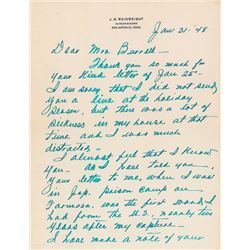 J. M. WAINWRIGHT
SAN ANTONIO, TEXAS
Jan 31-'48
Dear Mrs. Burrell -
Thank you so much for
your kind letter of Jan 25-
I am sorry that I did not send
you a line at the holiday
season, but there was a lot of
sickness in my house at that
time and I was much
distraite -
I almost feel that I know
you - as I have told you,
your letter to me, when I was
in Jap. prison camp on
Formosa, was the first word I
had from the U.S. nearly two
years after my capture -
I have made a note of your